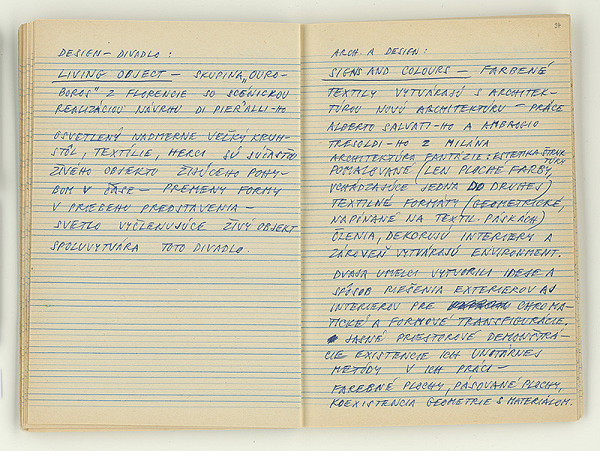 DESIGN – DIVADLO :
LIVING OBJECT – SKUPINA „OURO-
BOROS" Z FLORENCIE SO SCÉNICKOU
REALIZÁCIOU NÁVRHU DI PIER'ALLI-HO
OSVETLENÝ NADMERNE VEĽKÝ KRUH-
STÔL, TEXTÍLIE, HERCI SÚ SÚČASŤOU
ŽIVÉHO OBJEKTU ŽIJÚCEHO POHY-
BOM V ČASE – PREMENY FORMY
V PRIEBEHU PREDSTAVENIA –
SVETLO VYČLENUJÚCE ŽIVÝ OBJEKT
SPOLUVYTVÁRA TOTO DIVADLO.
ARCH. A DESIGN :
SIGNS AND COLOURS – FARBENÉ
TEXTILY VYTVÁRAJÚ S ARCHITEK-
TÚROU NOVÚ ARCHITEKTÚRU – PRÁCE
ALBERTO SALVATI-HO A AMBROGIO
TRESOLDI-HO Z MILÁNA
ARCHITEKTÚRA FANTÁZIE: ESTETIKA ŠTRUK
TÚRY
POMAĽOVANÉ (LEN PLOCHE FARBY,
VCHÁDZAJÚCE JEDNA DO DRUHEJ)
TEXTILNÉ FORMÁTY (GEOMETRICKÉ,
NAPÍNANÉ NA TEXTIL. PÁSKACH)
ČLENIA, DEKORUJÚ INTERIÉRY A
ZÁROVEŇ VYTVÁRAJÚ ENVIRONMENT.
DVAJA UMELCI VYTVORILI IDEJE A
SPÔSOB RIEŠENIA EXTERIÉROV AJ
INTERIÉROV PRE CHROMA-
TICKÉ A FORMOVÉ TRANSFIGURÁCIE.
JASNÉ PRIESTOROVÉ DEMONŠTRÁ-
CIE EXISTENCIE ICH UNITÁRNEJ
METÓDY V ICH PRÁCI –
FAREBNÉ PLOCHY, PÁSOVANÉ PLOCHY,
KOEXISTENCIA GEOMETRIE S MATERIÁLOM.